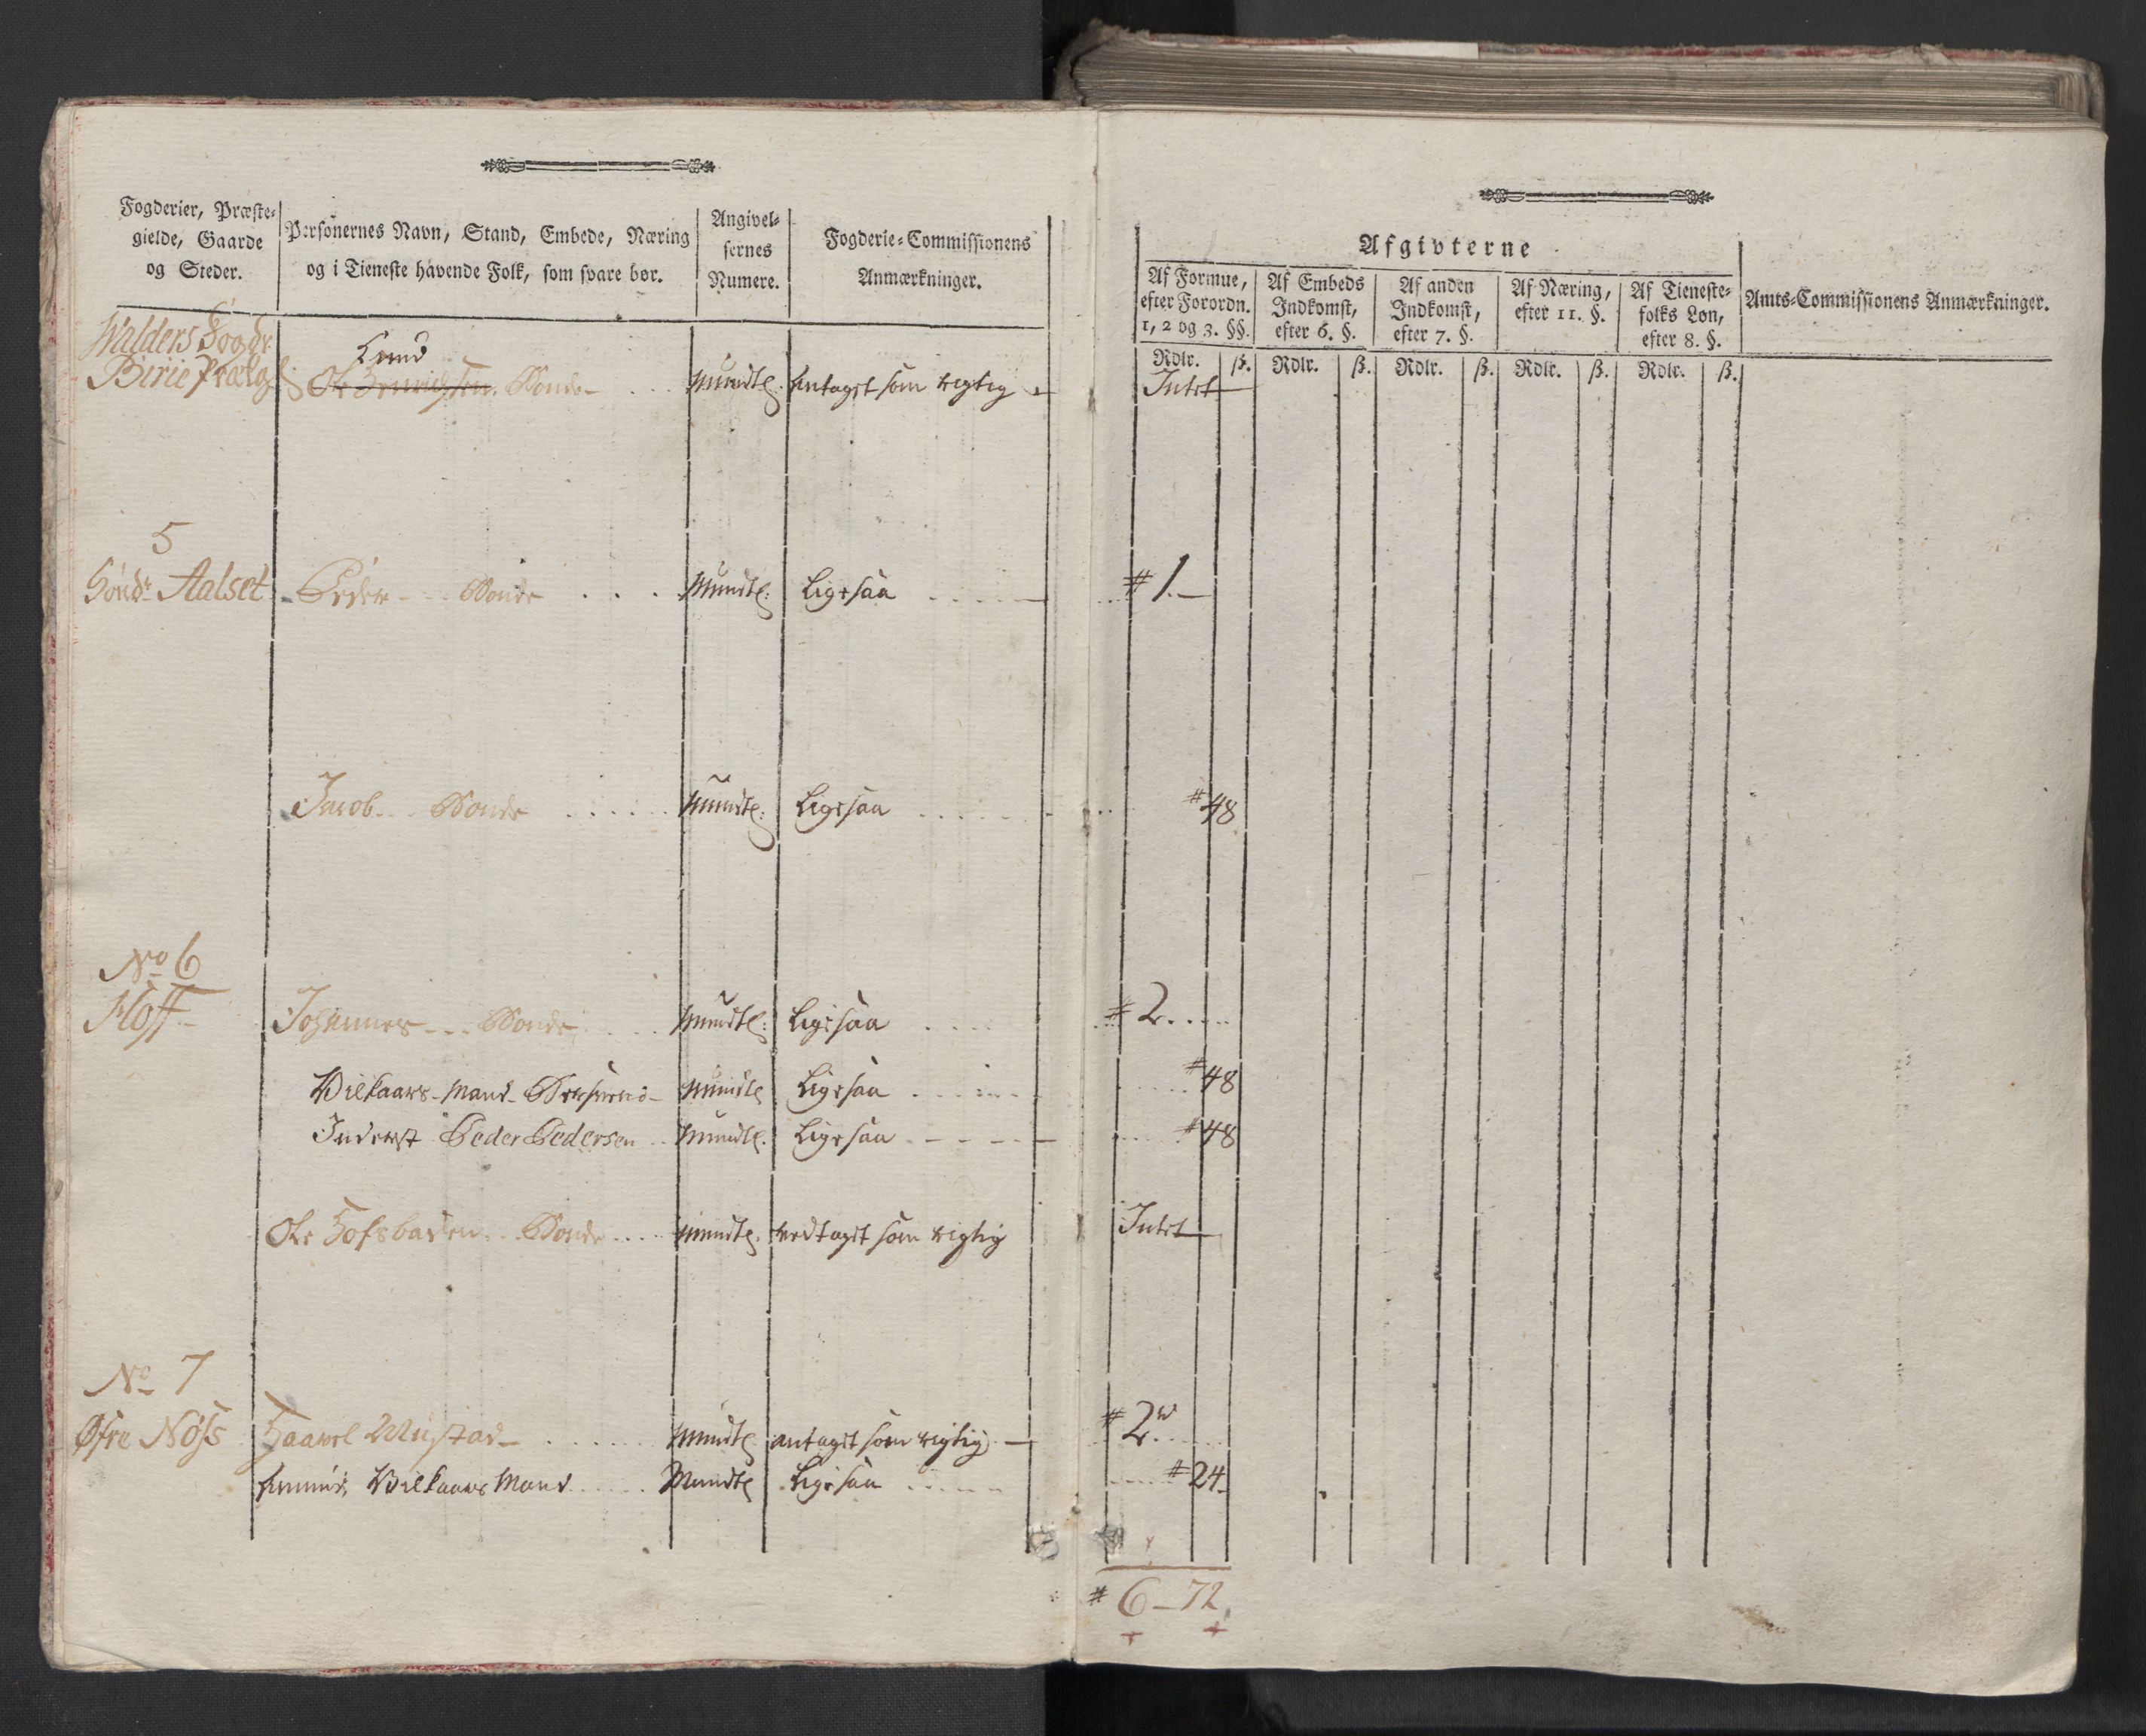 Fogderier, Præste-
gielde, Gaarde
og Steder.
Personernes Navn, Stand, Embede, Næring
og i Tieneste havende Folk, som svare bør.
Angivel-
sernes
Numere.
Fogderie-Commissionens
Anmærkninger.
Afgivterne
Af Formue,
efter Forordn.
1, 2 og 3. §§.
Af Embeds
Indkomst,
efter 6. §.
Af anden
Indkomst,
efter 7. §.
Af Næring,
efter 11. §.
Af Tieneste-
folks Løn,
efter 8. §.
Amts-Commissionens Anmærkninger.
Rdlr. ß. Rdlr. ß. Rdlr. ß. Rdlr. ß. Rdlr. ß.
Walders Sogn
Birie Præstg:
Ole Bonde Mundtl: Antaget som rigtig Intet
5
Sønd: Aalset Peder Bonde Mundtl: Ligesaa # 1.
Jacob Bonde Mundtl: Ligesaa # 48
No 6
Hoff Johannes Bonde Mundtl: Ligesaa # 2
Vilkaars-Mand Mundtl Ligesaa # 48
Inderst Peder Pedersen Mundtl: Ligesaa # 48
Ole Hofsbakken Bonde Mundtl: Vedtaget som rigtig Intet
No 7
Øfre Nøss Haavel Mustad Mundtl antaget som rigtig # 2
Vilkaars Mand Mundtl Ligesaa # 24
# 6 - 72